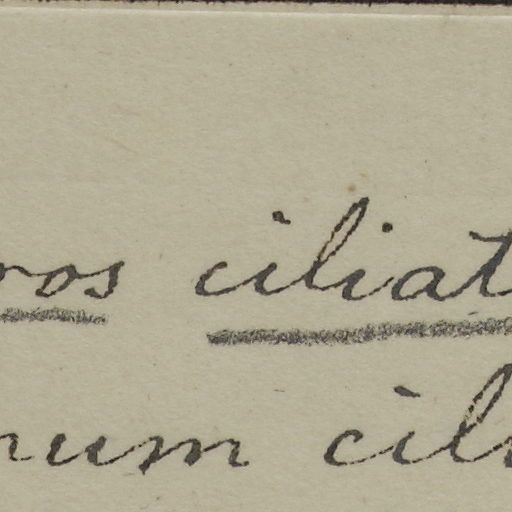 ros ciliat
num cili